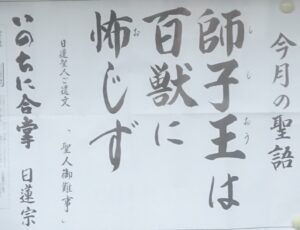 今月の聖語
師子王は
百獣に
怖じず
日蓮聖人ご遺文
「聖人御難事」
いのちに合掌 日蓮宗